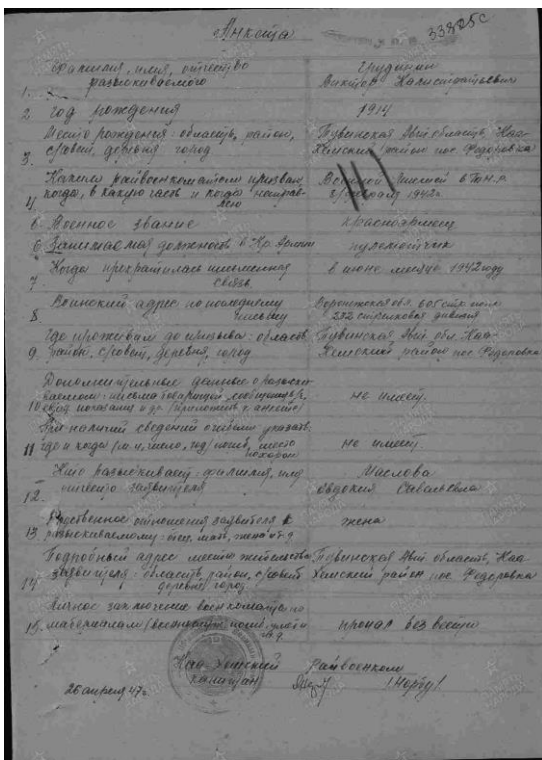 Анкета
33825с
Фамилия, имя, отчество
разыскиваемого
Грудинин
Виктор Калистратьевич
1.
2 год рождения
1914
Место рождения: область, район,
с/совет, деревня город
3.
Тувинская Авт. область, Каа-
Хемский район пос. Федоровка
Каким райвоенкоматом призван,
когда, в какую часть и когда направ-
лен
4
Военной миссией в Т.Н.Р.
февраля 1942г.
5 Военное звание
красноармеец
6 Занимаемая должность в Кр. Армии
пулеметчик
Когда прекратилась письменная
связь
7
в июне месяце 1942 году
Воинский адрес по последнему
письму
8
Воронежская обл. 605 стр. полк
232 стрелковая дивизия
Где проживал до призыва: область,
9. район, с/совет, деревня, город
Тувинская Авт. обл. Каа-
Хемский район пос. Федоровка
Дополнительные данные о разыски-
ваемом: письма товарищей, сообщения
10
не имеет.
При наличии сведений о гибели указать:
11 где и когда (м-ц, число, год) погиб, место
похорон
не имеет.
Кто разыскивает: фамилия, имя
отчество заявителя
12.
Маслова
Евдокия Савельевна
Родственное отношение заявителя к
13 разыскиваемому: отец, мать, жена и т.д
жена
Подробный адрес место жительства
заявителя: область, район, с/совет
деревня, город
14
Тувинская Авт. область, Каа-
Хемский район пос. Федоровка
Личное заключение военкомата по
15. материалам
пропал без вести
Каа-Хемский Райвоенком
капитан
26 апреля 47г.